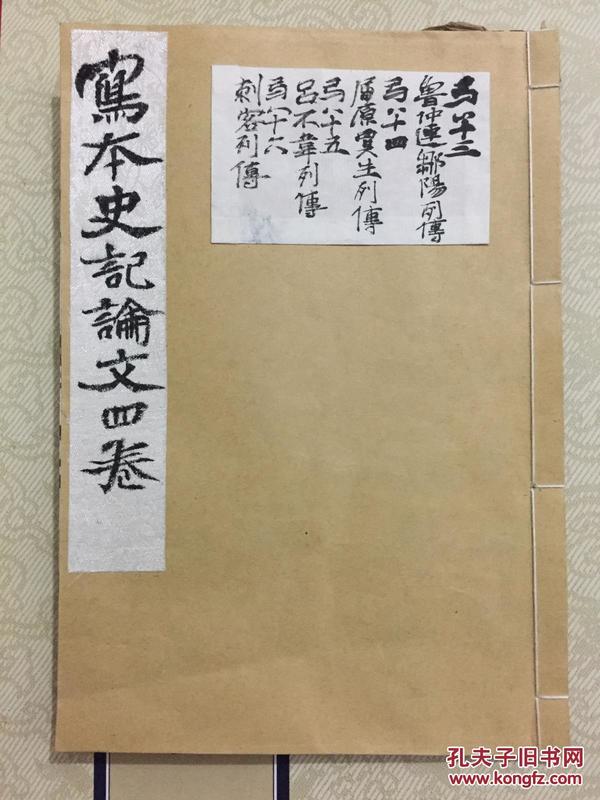 寫本史記論文四卷
弓八十三
魯仲連鄒陽列傳
弓八十四
屈原賈生列傳
弓八十五
呂不韋列傳
弓八十六
刺客列傳
孔夫子旧书网
www.kongfz.com